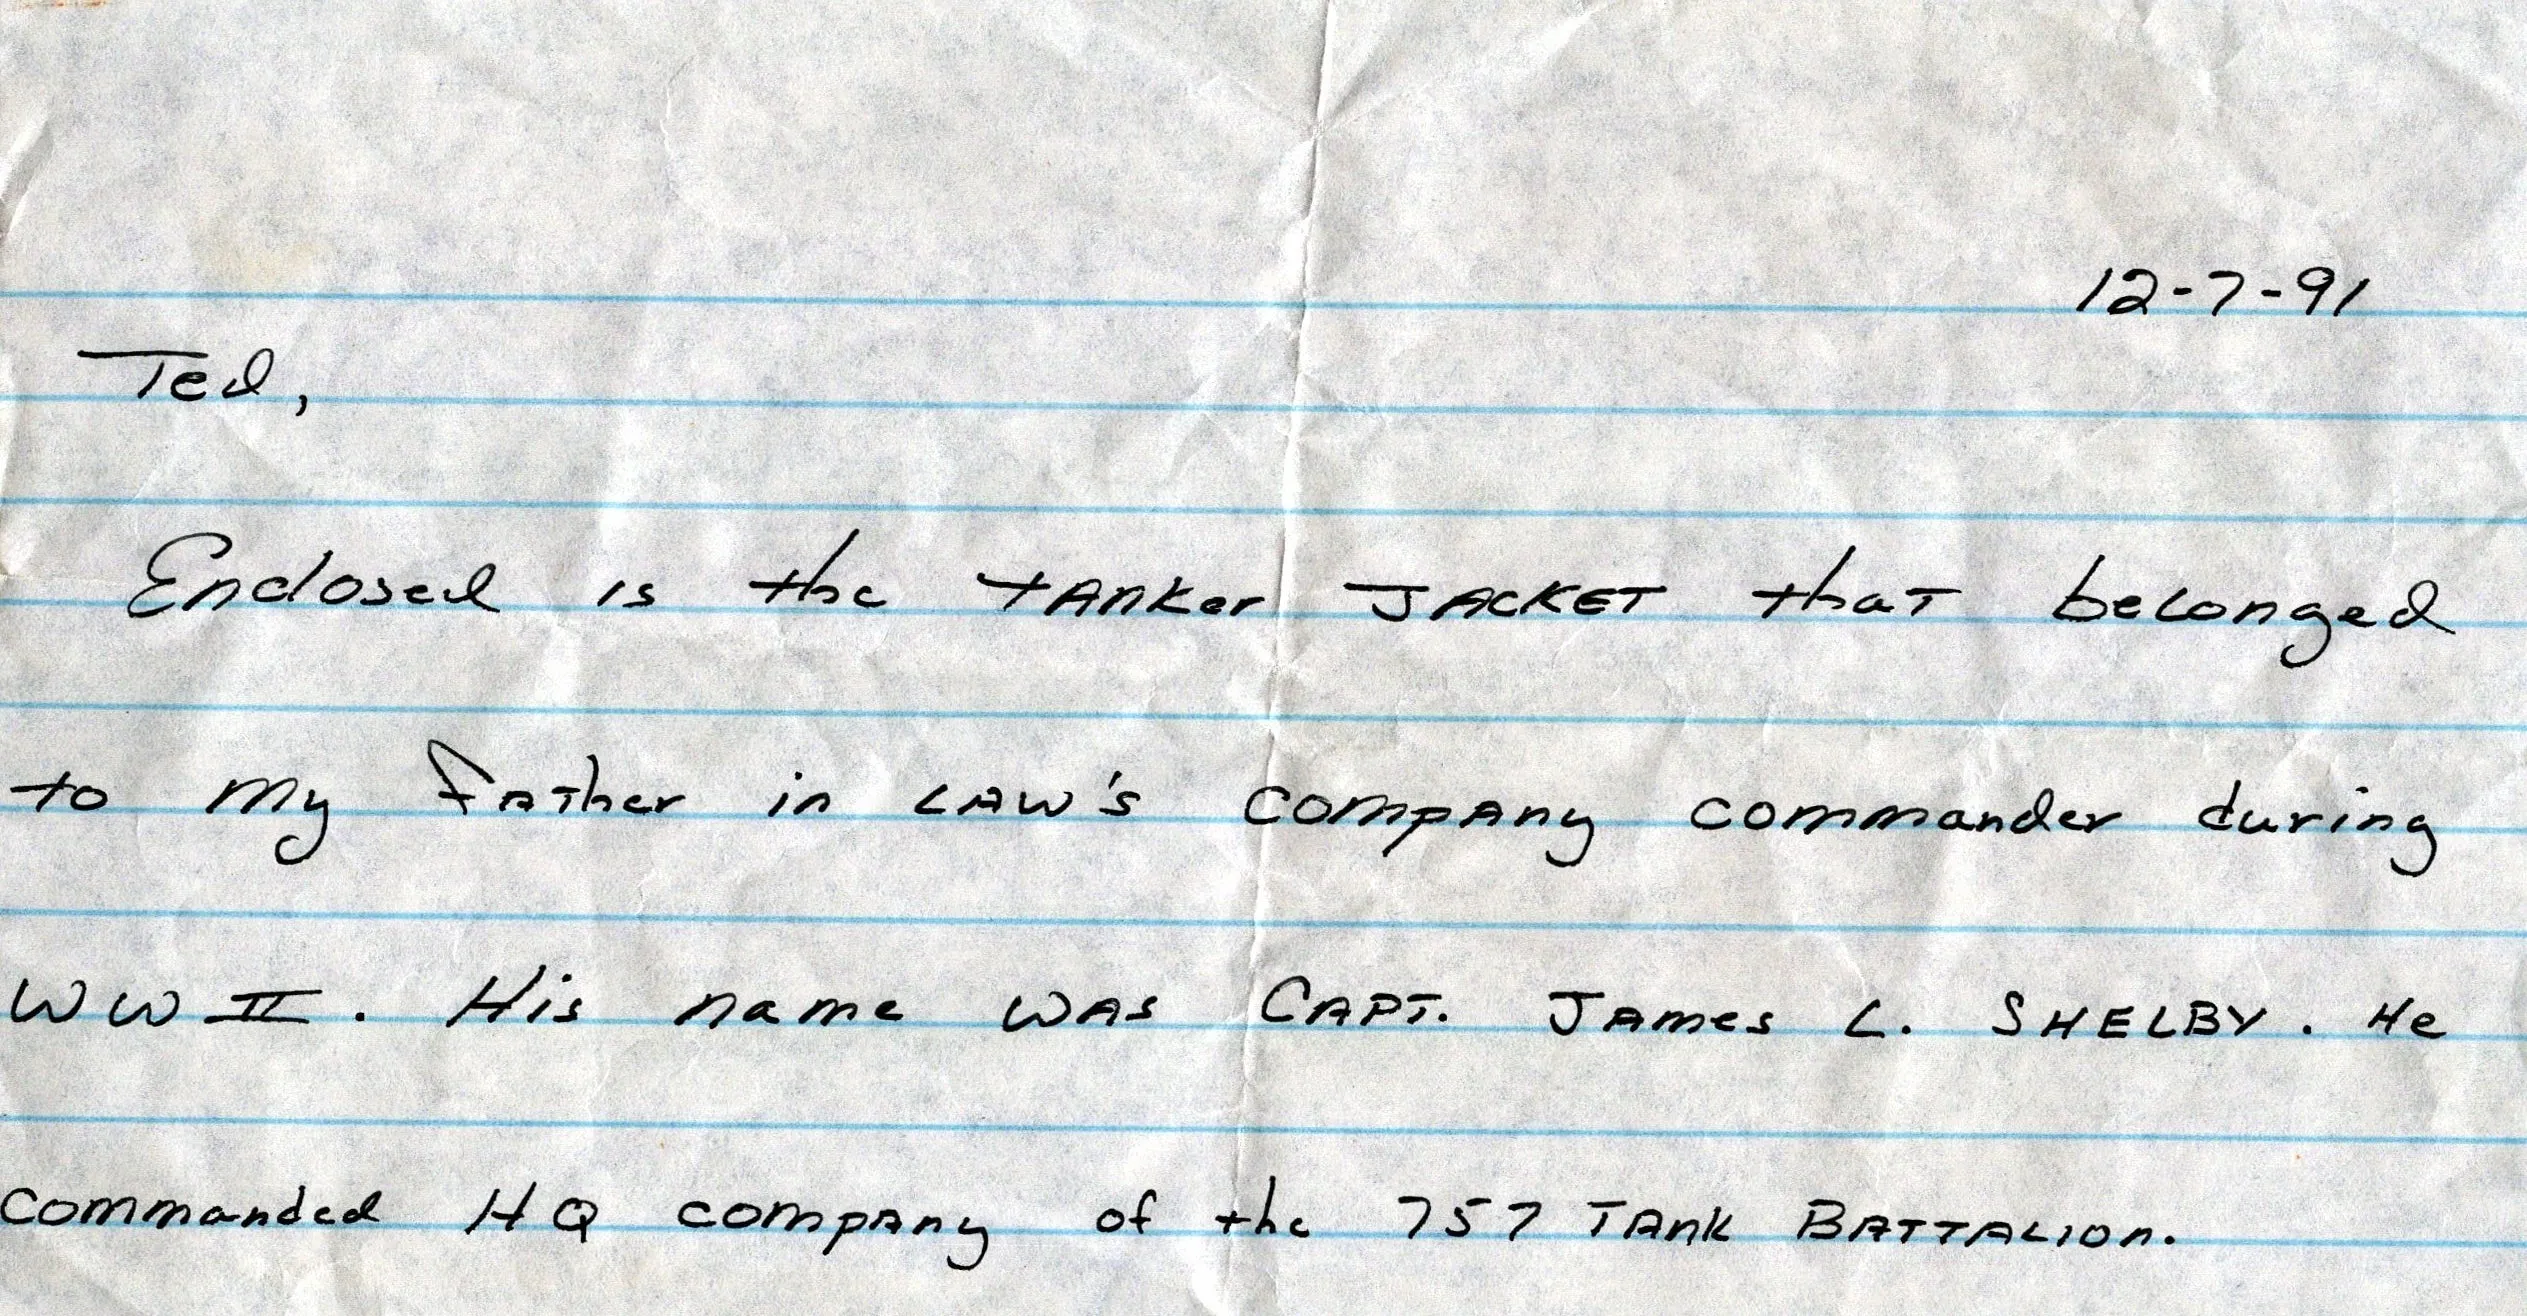 12-7-91
Ted,
Enclosed is the tanker JACKET that belonged
to my father in law's company commander during
WW II. His name was CAPT. James L. SHELBY. He
commanded HQ company of the 757 Tank Battalion.